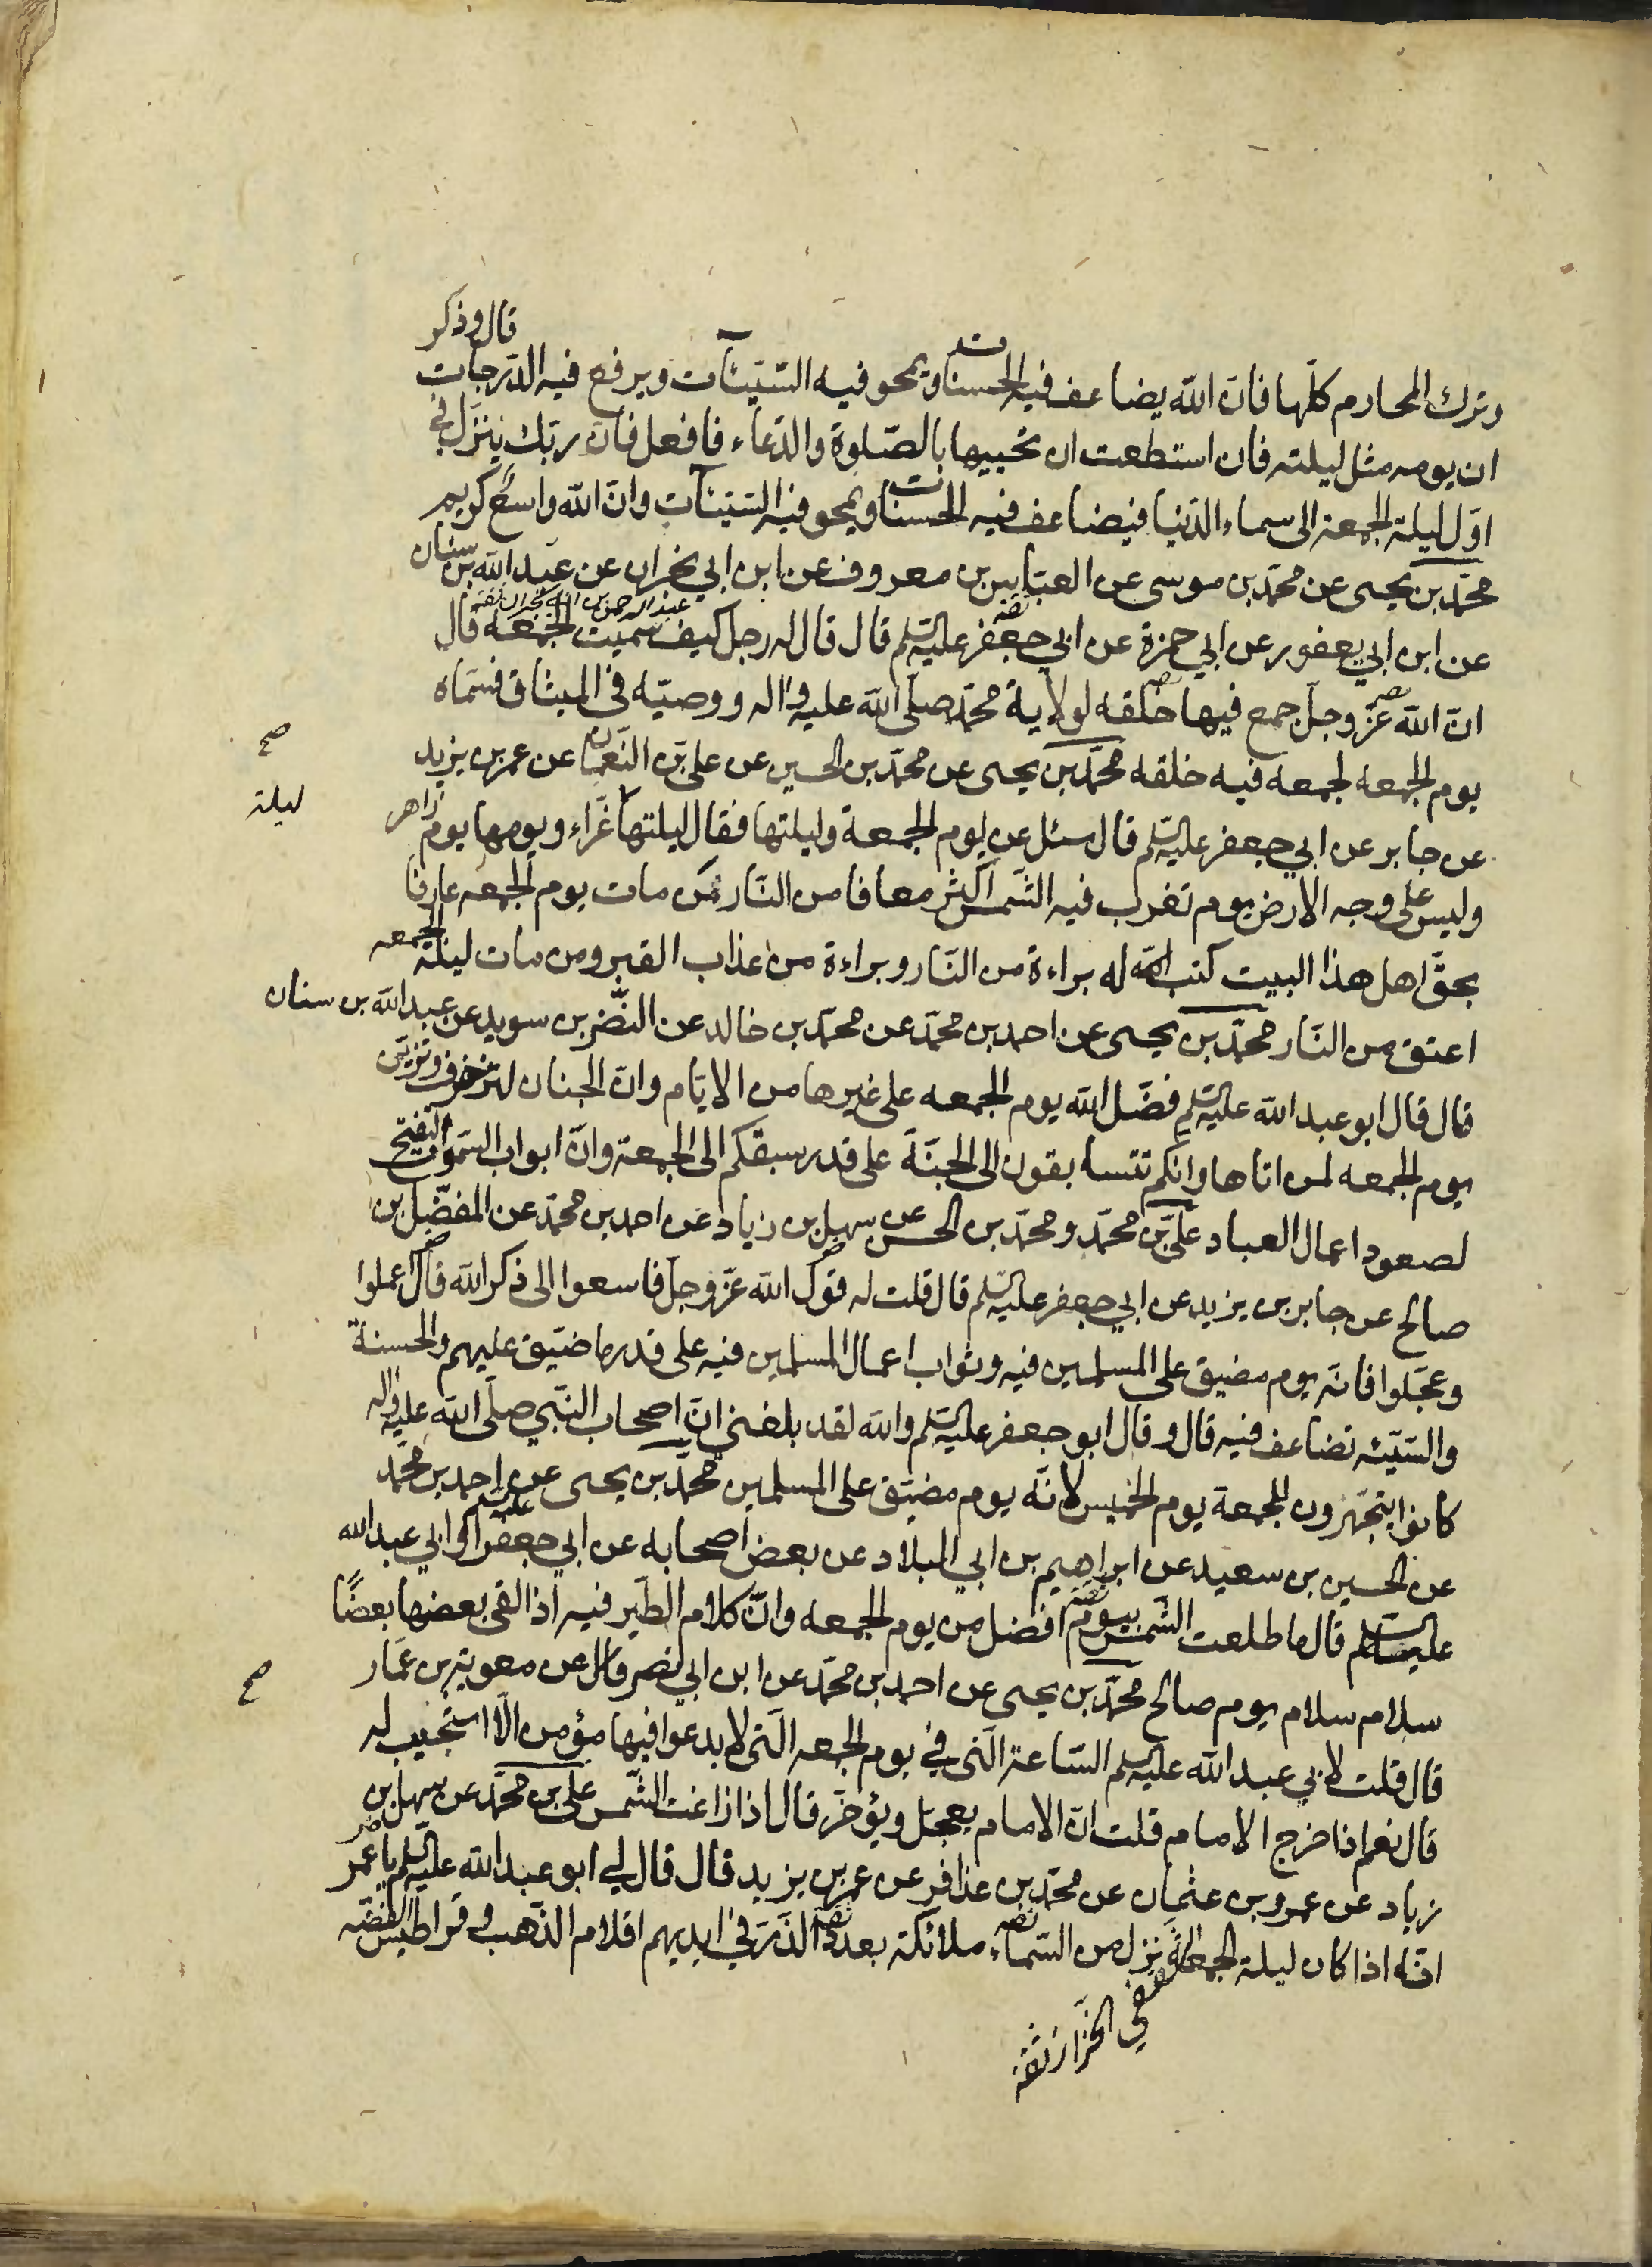 وترك المحارم كلّها فانّ اللّه يضاعف فيه الحسنات ويمحو فيه السّيّئآت ويرفع فيه الدّرجات قال وذكر
ان يومه مثل ليلته فان استطعت ان تحييها بالصّلوة والدّعاء فافعل فانّ ربّك ينزل في
اوّل ليلة الجمعة الى سماء الدّنيا فيضاعف فيه الحسنات ويمحو فيه السّيّئآت وانّ اللّه واسع كريم
محمّد بن يحيى عن محمّد بن موسى عن العبّاس بن معروف عن ابن ابي نجران عن عبد اللّه بن سنان
عبد الرحمن بن ابي نجران ثقة
عن ابن ابي يعفور عن ابي حمزة عن ابي جعفر عليه السّلم قال قال له رجل كيف سمّيت الجمعه قال
انّ اللّه عزّ وجلّ جمع فيها خلقه لولاية محمّد صلّى اللّه عليه واله ووصيّه في الميثاق فسمّاه
صح
يوم الجمعه لجمعه فيه خلقه محمّد بن يحيى عن محمّد بن الحسين عن علي بن النّعمان عن عمر بن يزيد
ليلة
عن جابر عن ابي جعفر عليه السّلم قال سئل عن يوم الجمعة وليلتها فقال ليلتها غرّاء ويومها يوم زاهر
وليس على وجه الارض يوم تغرب فيه الشّمس اكثر معافا من النّار من مات يوم الجمعه عارفا
بحقّ اهل هذا البيت كتب اللّه له براءة من النّار وبراءة من عذاب القبر ومن مات ليلة الجمعه
اعتق من النّار محمّد بن يحيى عن احمد بن محمّد عن محمّد بن خالد عن النّضر بن سويد عن عبد اللّه بن سنان
قال قال ابو عبد اللّه عليه السّلم فضّل اللّه يوم الجمعه على غيرها من الايّام وانّ الجنان لتزخرف وتزيّن
يوم الجمعه لمن اتاها وانّكم تتسابقون الى الجنّة على قدر سبقكم الى الجمعة وانّ ابواب السّموات لتفتّح
لصعود اعمال العباد علي بن محمّد ومحمّد بن الحسن عن سهل بن زياد عن احمد بن محمّد عن المفضّل بن
صالح عن جابر بن يزيد عن ابي جعفر عليه السّلم قال قلت له قول اللّه عزّ وجلّ فاسعوا الى ذكر اللّه قال اعملوا
وعجّلوا فانّه يوم مضيق على المسلمين فيه وثواب اعمال المسلمين فيه على قدر ما ضيّق عليهم والحسنة
والسّيّئه تضاعف فيه قال وقال ابو جعفر عليه السّلم واللّه لقد بلغني انّ اصحاب النّبي صلّى اللّه عليه واله
كانوا يتجهّزون للجمعة يوم الخميس لانّه يوم مضيّق على المسلمين محمّد بن يحيى عن احمد بن محمّد
عن الحسين بن سعيد عن ابراهيم بن ابي البلاد عن بعض اصحابه عن ابي جعفر او ابي عبد اللّه
عليه السّلم قال ما طلعت الشّمس بيوم افضل من يوم الجمعه وانّ كلام الطّير فيه اذا لقى بعضها بعضًا
سلام سلام يوم صالح محمّد بن يحيى عن احمد بن محمّد عن ابن ابي نصر عن معوية بن عمّار
صح
قال قلت لابي عبد اللّه عليه السّلم السّاعة الّتي في يوم الجمعه الّتي لا يدعوا فيها مؤمن الّا استجيب له
قال نعم اذا خرج الامام قلت انّ الامام يعجّل ويؤخّر قال اذا زاغت الشّمس علي بن محمّد عن سهل بن
زياد عن عمرو بن عثمان عن محمّد بن عذافر عن عمر بن يزيد قال قال لي ابو عبد اللّه عليه السّلم يا عمر
انّه اذا كان ليلة الجمعة نزل من السّماء ملائكة بعدد الذّرّ في ايديهم اقلام الذّهب وقراطيس الفضّه
الخزّاز ثقة